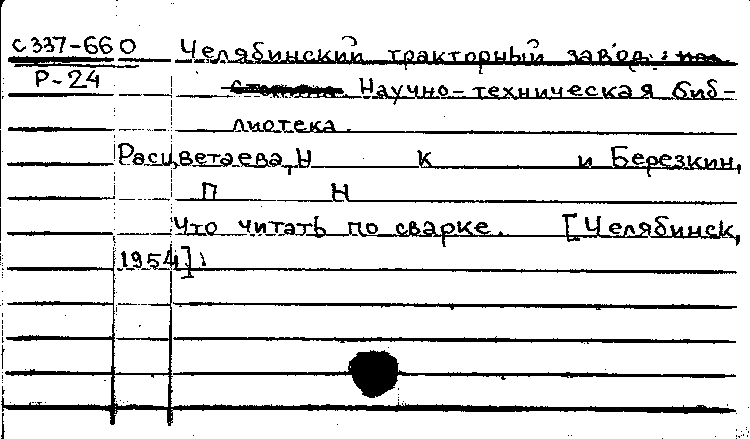 с337-660 Челябинский тракторный завод.
Р-24 Научно-техническая биб-
лиотека.
Расцветаева, Н К и Березкин,
П Н
Что читать по сварке. [Челябинск,
1954]